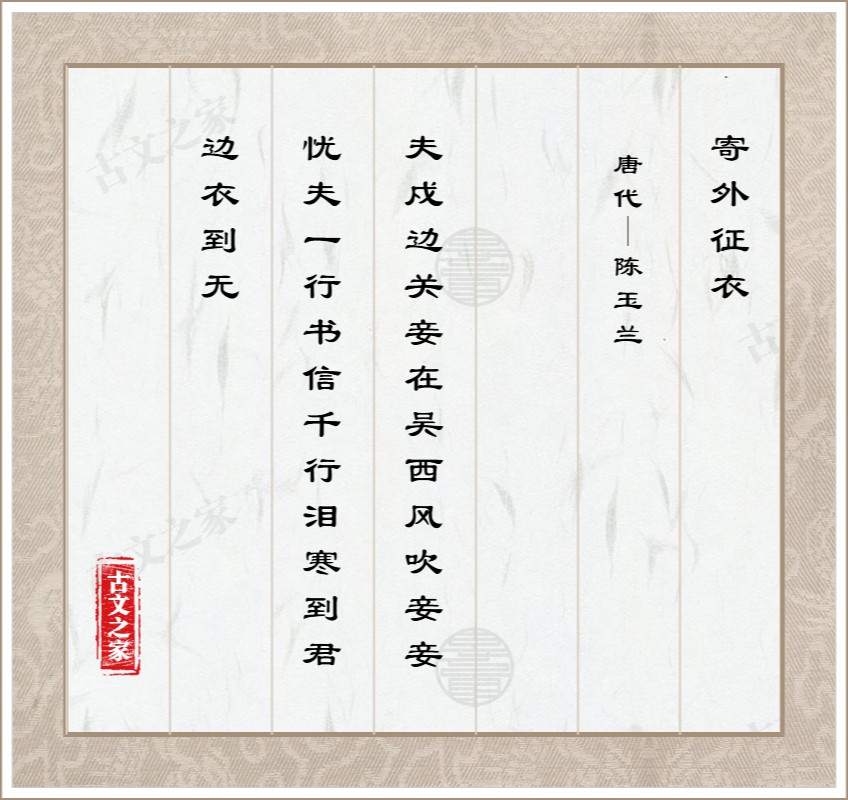 寄外征衣
唐代—陈玉兰
夫戍边关妾在吴西风吹妾妾
忧夫一行书信千行泪寒到君
边衣到无
古文之家
古文之家
古文之家